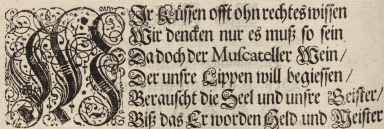 WJr Küssen offt ohn rechtes wissen
Wir dencken nur es muß so sein
Da doch der Muscateller Wein/
Der unsre Lippen will begiessen/
Berauscht die Seel und unsre Geister/
Biß das Er worden Held und Meister